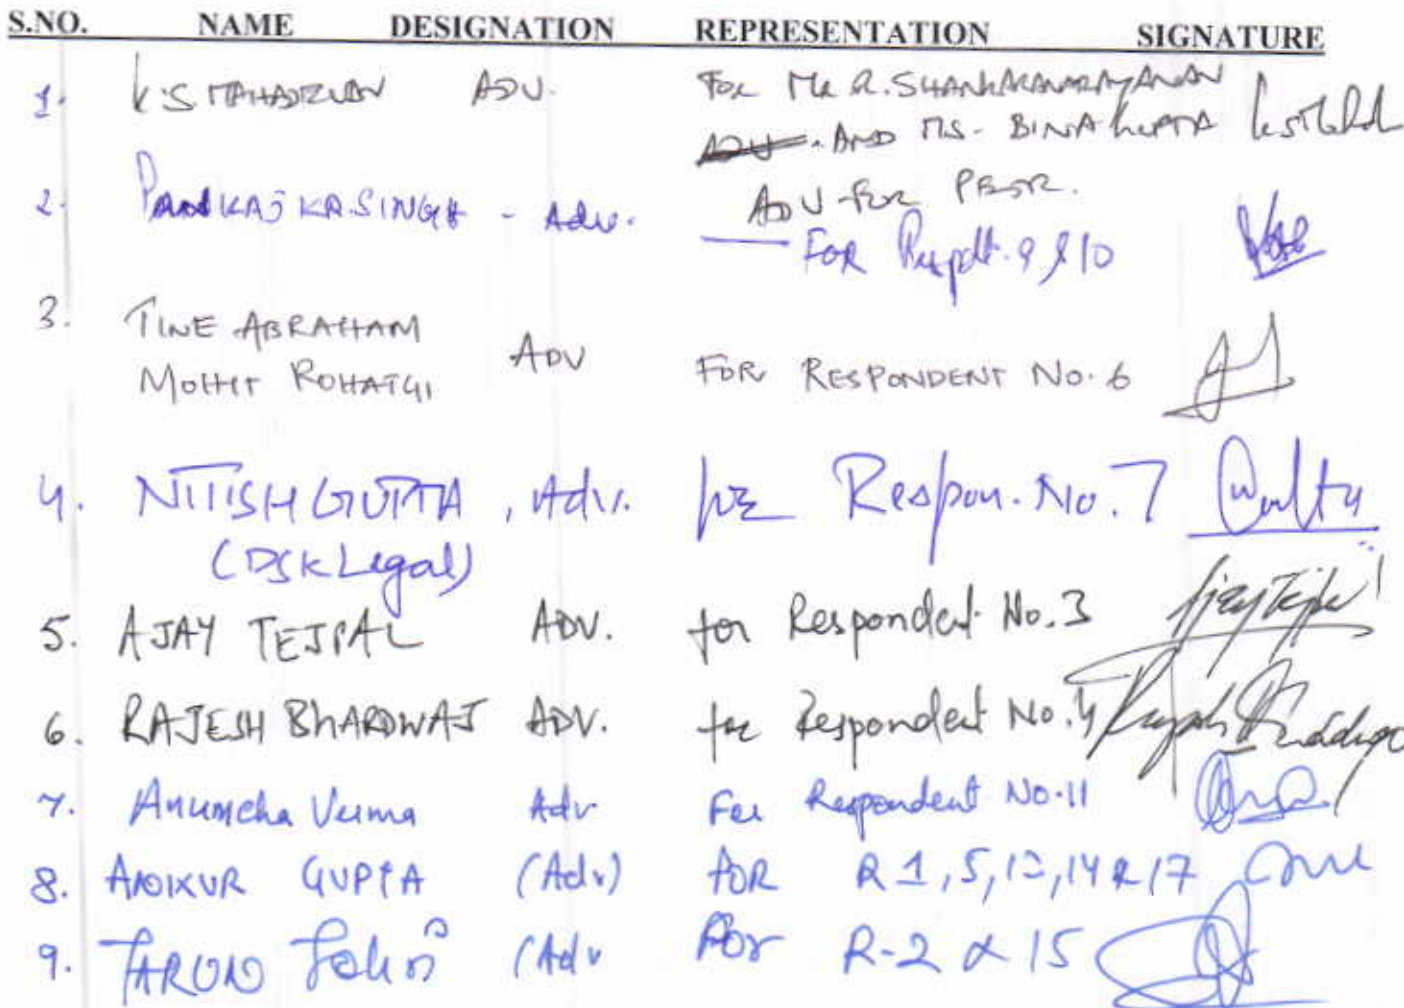 S.NO. NAME DESIGNATION REPRESENTATION SIGNATURE
1. K.S MAHADEVAN ADV. FOR MR R. SHANKARANARAYANAN
ADV. AND MS. BINA GUPTA
ADV FOR PETR.
2. PANKAJ KR. SINGH - Adv. FOR Respdt. 9 & 10
3. TINE ABRAHAM
MOHIT ROHATGI ADV FOR RESPONDENT NO. 6
4. NITISH GUPTA, Adv. for Respon. No. 7
(DSK Legal)
5. AJAY TEJPAL ADV. for Respondent No. 3
6. RAJESH BHARDWAJ ADV. for Respondent No. 4
7. Anumeha Verma Adv For Respondent No. 11
8. ANKUR GUPTA (Adv) FOR R 1, 5, 12, 14 & 17
9. TARUN (Adv For R-2 & 15